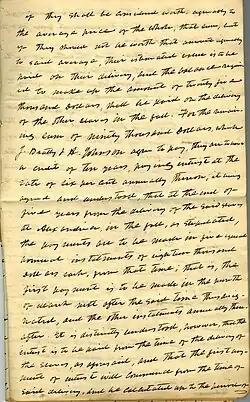 of they shall be considered worth, equally to
the average price of the whole, that sum, but
if they should not be worth that amount equally
to said average, their estimated value is to be
paid on their delivery, and the balance requir
ed to make up the amount of twenty five
thousand dollars, shall be paid on the delivery
of the other slaves in the fall. For the remain
ing sum of ninety thousand dollars, which
J. Batty & H. Johnson agree to pay, they are to have
a credit of ten years, paying interest at the
rate of six per cent annually thereon, it being
agreed and understood, that at the end of
five years from the delivery of the said slaves
at New Orleans, in the fall, as stipulated,
the payments are to be made in five equal
annual instalments of eighteen thousand
dollars each, from that time; that is, the
first payment is to be made in the month
of March next after the said time thus desig-
nated, and the other instalments annually there
after. It is distinctly understood, however, that the
interest is to be paid from the time of the delivery of
the slaves, as aforesaid, and that the first pay
ment of interest will commence from the time of
said delivery, and be calculated up to the period of